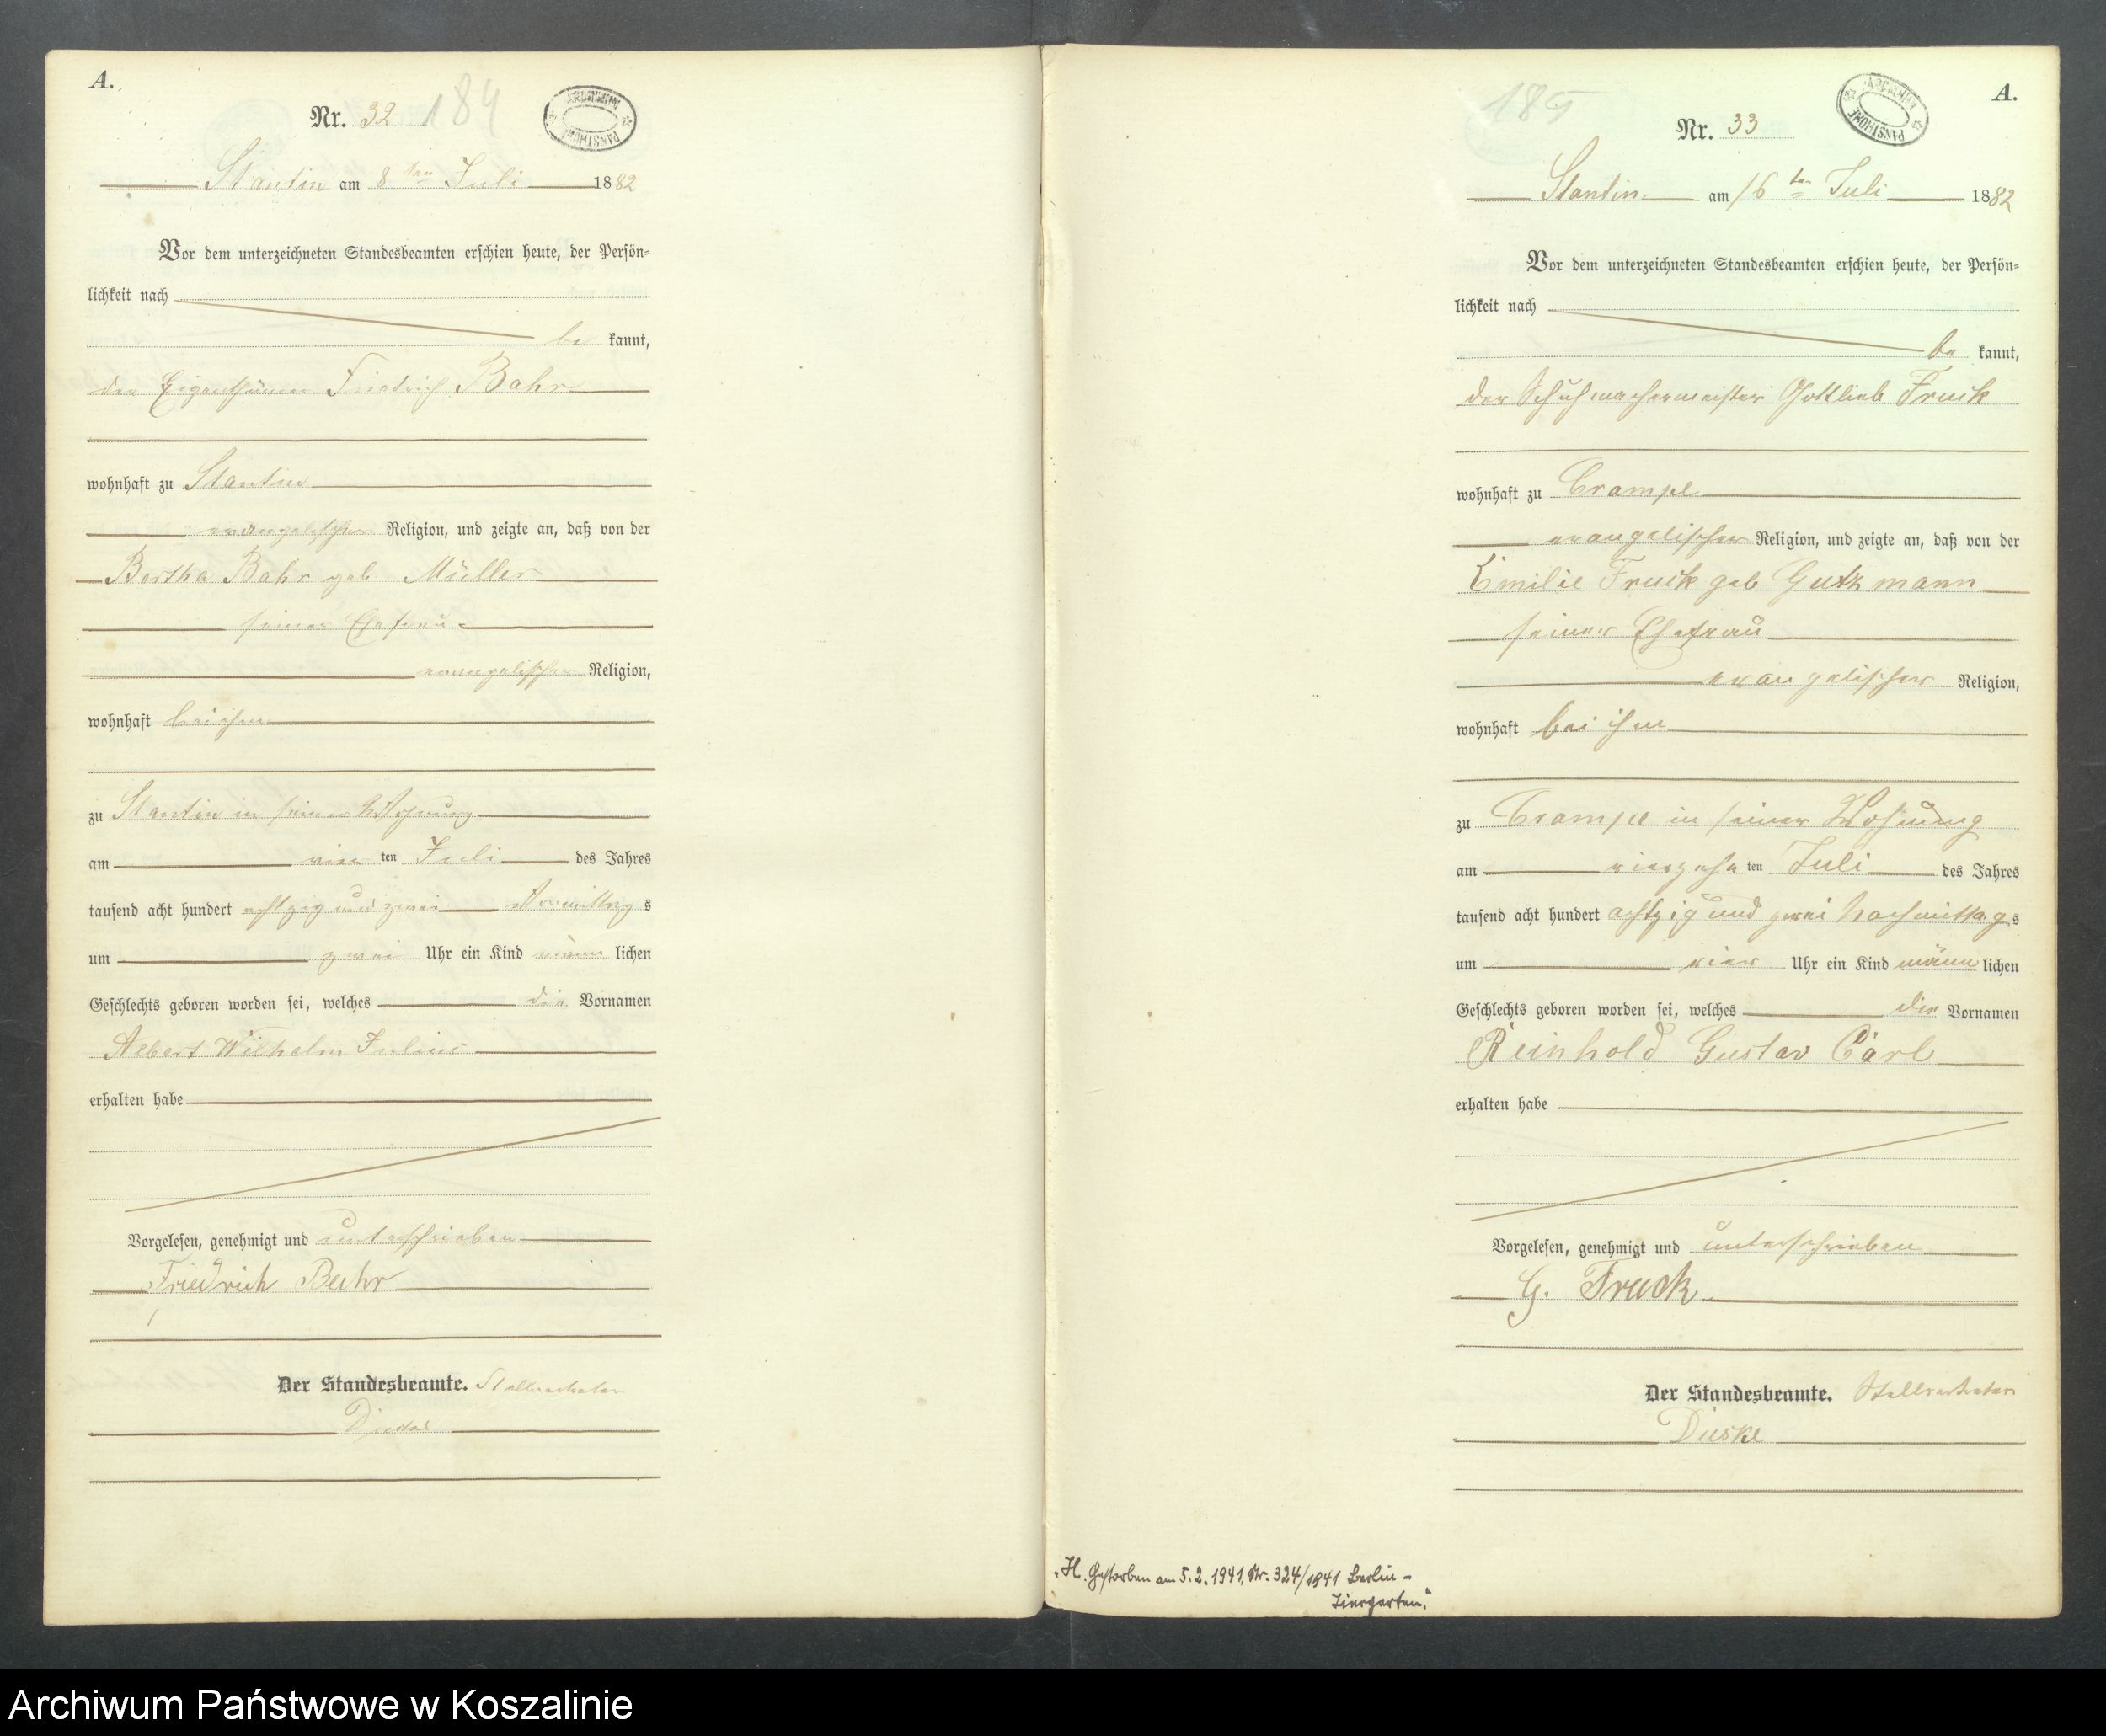 A.
Nr. 32 184
ARCHIWUM PAŃSTWOWE
Stantin am 8 ten Juli 1882
Vor dem unterzeichneten Standesbeamten erschien heute, der Persön=
lichkeit nach
be kannt,
der Eigenthümer Friedrich Bahr
wohnhaft zu Stantin
evangelischer Religion, und zeigte an, daß von der
Bertha Bahr geb. Müller
seiner Ehefrau
evangelischer Religion,
wohnhaft bei ihm
zu Stantin in seiner Wohnung
am vier ten Juli des Jahres
tausend acht hundert achtzig und zwei Vormittag s
um zwei Uhr ein Kind männ lichen
Geschlechts geboren worden sei, welches die Vornamen
Albert Wilhelm Julius
erhalten habe
Vorgelesen, genehmigt und unterschrieben
Friedrich Bahr
Der Standesbeamte. Stellvertreter
A.
185
Nr. 33
ARCHIWUM PAŃSTWOWE
Stantin am 16 ten Juli 1882
Vor dem unterzeichneten Standesbeamten erschien heute, der Persön=
lichkeit nach
be kannt,
der Schuhmachermeister Gottlieb Truck
wohnhaft zu Crampe
evangelischer Religion, und zeigte an, daß von der
Emilie Truck geb Gutzmann
seiner Ehefrau
evangelischer Religion,
wohnhaft bei ihm
zu Crampe in seiner Wohnung
am vierzehn ten Juli des Jahres
tausend acht hundert achtzig und zwei Nachmittag s
um vier Uhr ein Kind männ lichen
Geschlechts geboren worden sei, welches die Vornamen
Reinhold Gustav Carl
erhalten habe
Vorgelesen, genehmigt und unterschrieben
G. Truck
Der Standesbeamte. Stellvertreter
Dieske
"H. Gestorben am 5.2.1941, Nr. 324/1941 Berlin-
Tiergarten."
Archiwum Państwowe w Koszalinie